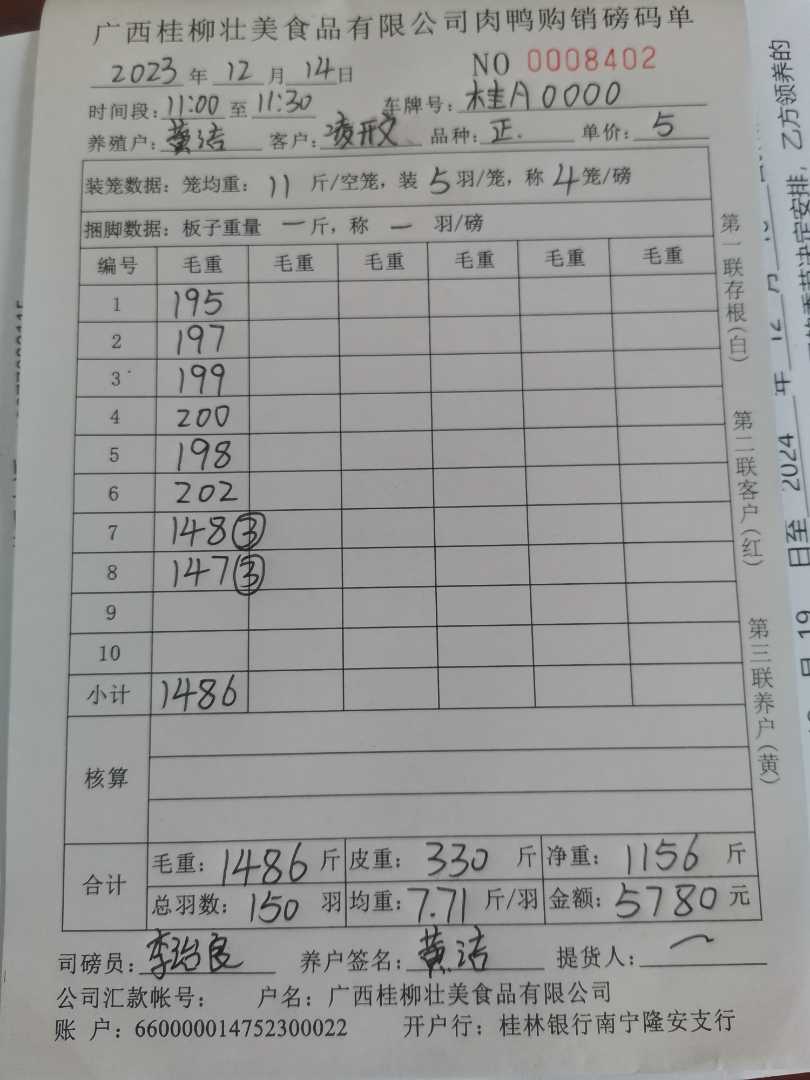 广西桂柳壮美食品有限公司肉鸭购销磅码单
2023 年 12 月 14 日 NO 0008402
时间段: 11:00 至 11:30 车牌号: 桂A0000
养殖户: 黄洁 客户: 凌形文 品种: 正. 单价: 5
装笼数据: 笼均重: 11 斤/空笼, 装 5 羽/笼, 称 4 笼/磅
捆脚数据: 板子重量 一 斤, 称 一 羽/磅
编号 毛重 毛重 毛重 毛重 毛重 毛重
1 195
2 197
3 199
4 200
5 198
6 202
7 148 ③
8 147 ③
9
10
小计 1486
核算
合计 毛重: 1486 斤 皮重: 330 斤 净重: 1156 斤
总羽数: 150 羽 均重: 7.71 斤/羽 金额: 5780 元
司磅员: 李治良 养户签名: 黄洁 提货人:
公司汇款帐号: 户名: 广西桂柳壮美食品有限公司
账 户: 660000014752300022 开户行: 桂林银行南宁隆安支行
第一联存根(白)
第二联客户(红)
第三联养户(黄)
乙方领养的
日至 2024 年 12 月
月 19